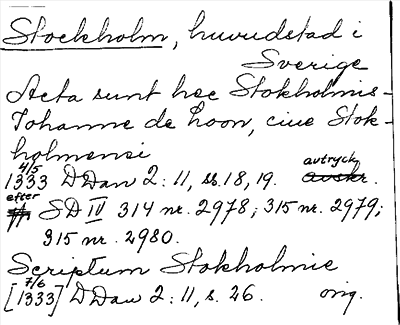 Stockholm, huvudstad i
Sverige
Acta sunt hec Stokholmis-
Johanne de Loon, cive Stok-
holmensi
4/5 1333 DDan 2:11, ss. 18, 19. avtryck
efter SD IV 314 nr. 2978; 315 nr. 2979;
315 nr. 2980.
Scriptum Stokholmie
7/6 [1333] DDan 2:11, s. 26. orig.